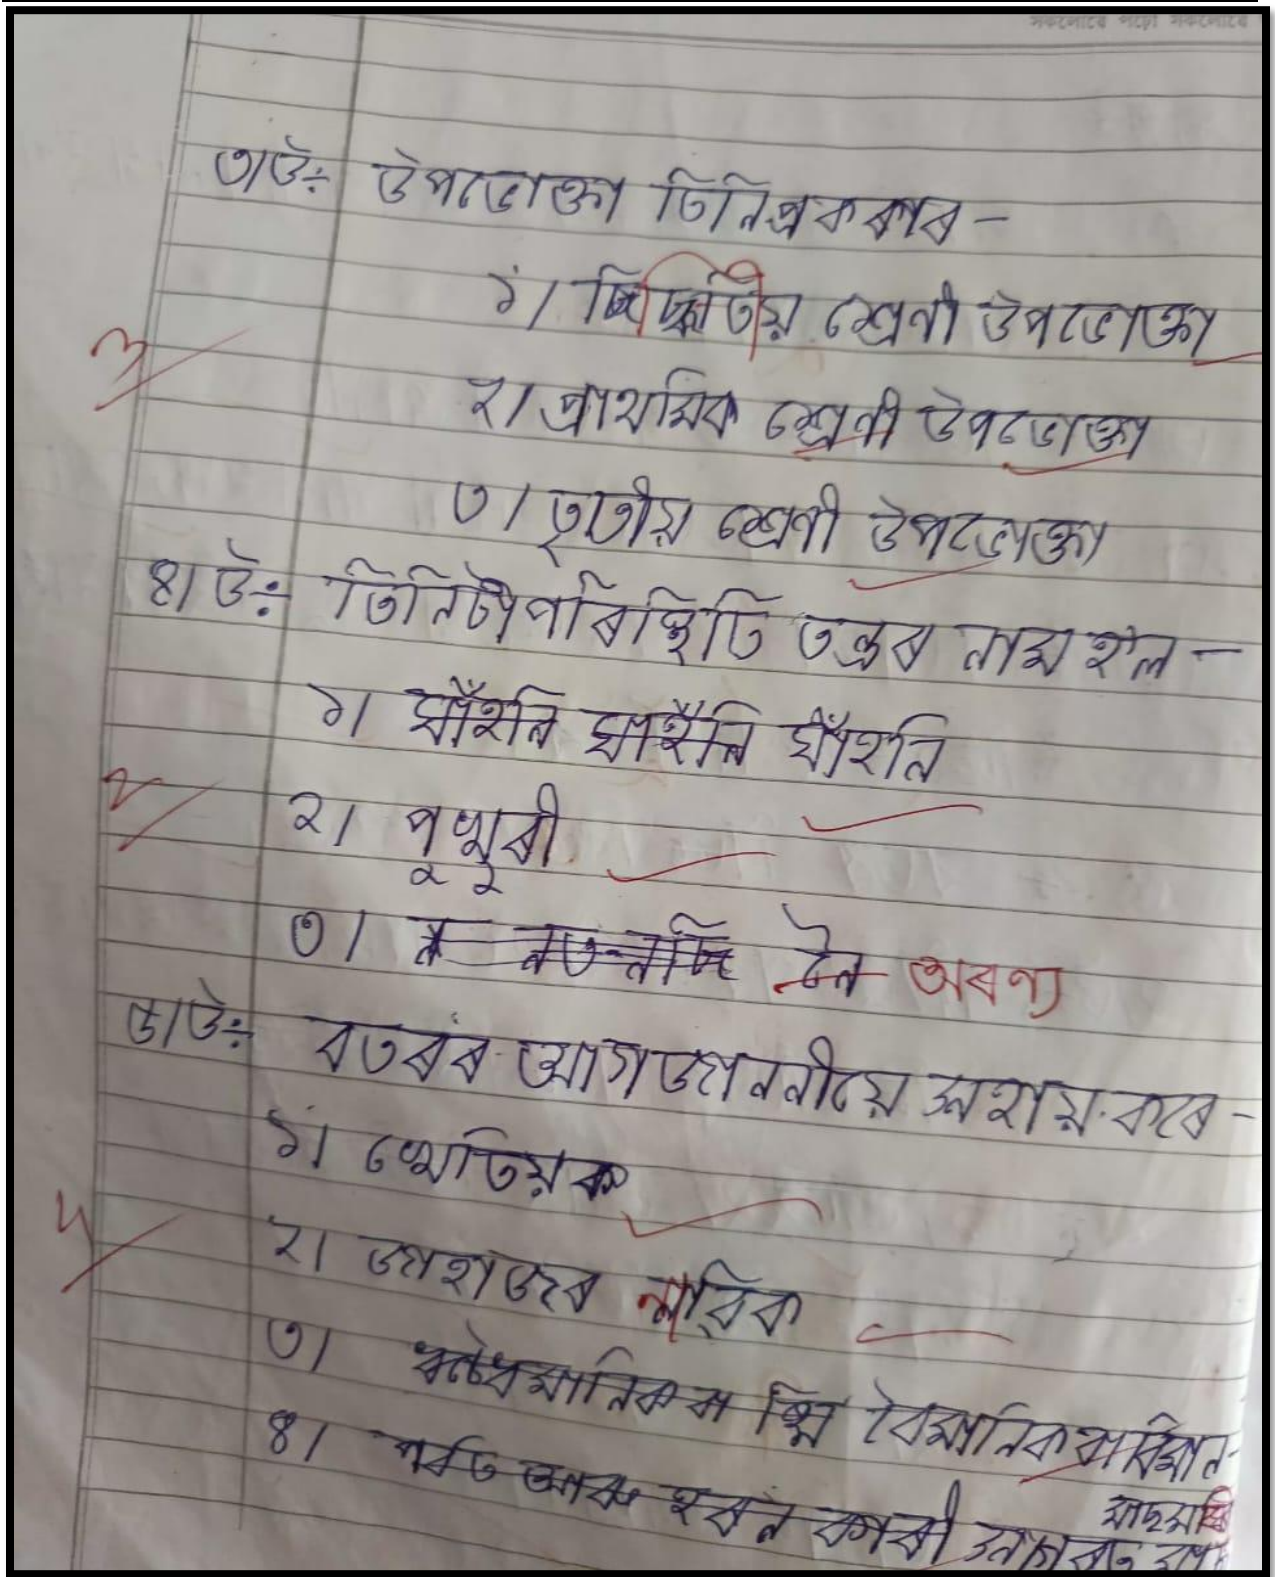 সকলোৱে পঢ়ো সকলোৱে
৩/উঃ উপভোক্তা তিনিপ্ৰকাৰ -
১/ দ্বিতীয় শ্ৰেণী উপভোক্তা
২/ প্ৰাথমিক শ্ৰেণী উপভোক্তা
৩/ তৃতীয় শ্ৰেণী উপভোক্তা
৪/ উঃ তিনিটা পৰিস্থিতি তন্ত্ৰৰ নাম হ'ল -
১/ ঘাঁহনি
২/ পুখুৰী
৩/ অৰণ্য
৫/উঃ বতৰৰ আগজাননীয়ে সহায় কৰে -
১/ খেতিয়ক
২/ জাহাজৰ নাৱিক
৩/ বৈমানিক বা বিমান
৪/ কাৰী সাগৰত
মাছমৰী